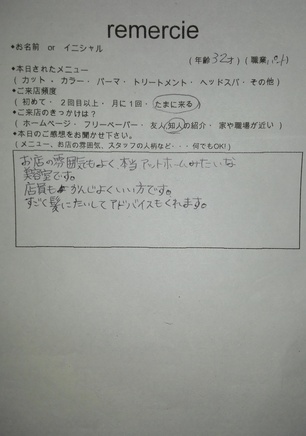 remercie
*お名前 or イニシャル
(年齢 32才) (職業 パート)
*本日されたメニュー
(カット ・ カラー ・ パーマ ・ トリートメント ・ ヘッドスパ ・ その他)
*ご来店頻度
(初めて ・ 2回目以上 ・ 月に1回 ・ たまに来る)
*ご来店のきっかけは?
(ホームページ ・ フリーペーパー ・ 友人知人の紹介 ・ 家や職場が近い)
*本日のご感想をお聞かせ下さい。
(メニュー、お店の雰囲気、スタッフの人柄など・・・何でもOK!)
お店の雰囲気もよく本当アットホームみたいな
美容室です。
店員もかんじよくいい方です。
すごく髪にたいしてアドバイスもくれます。